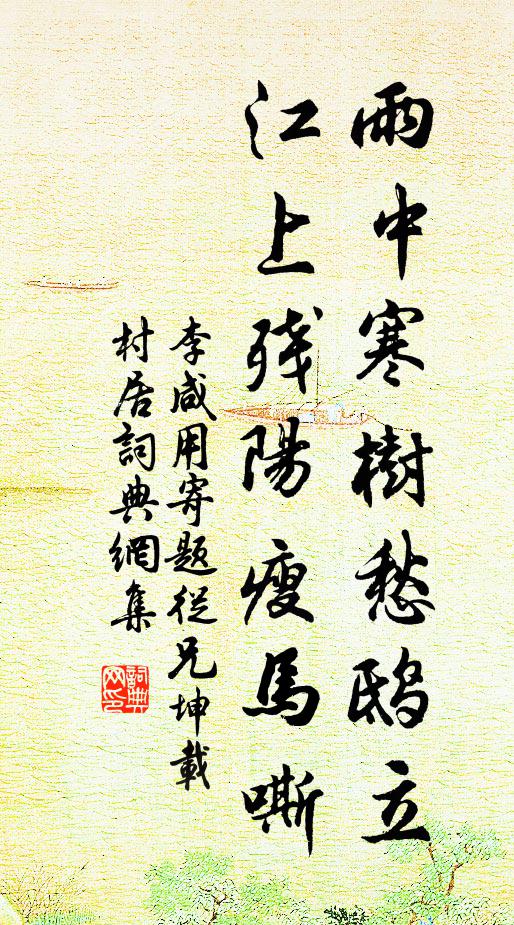 雨中寒樹愁鴟立
江上残陽瘦馬嘶
李咸用寄題從兄坤載
村居詞典網集
詞典
网印